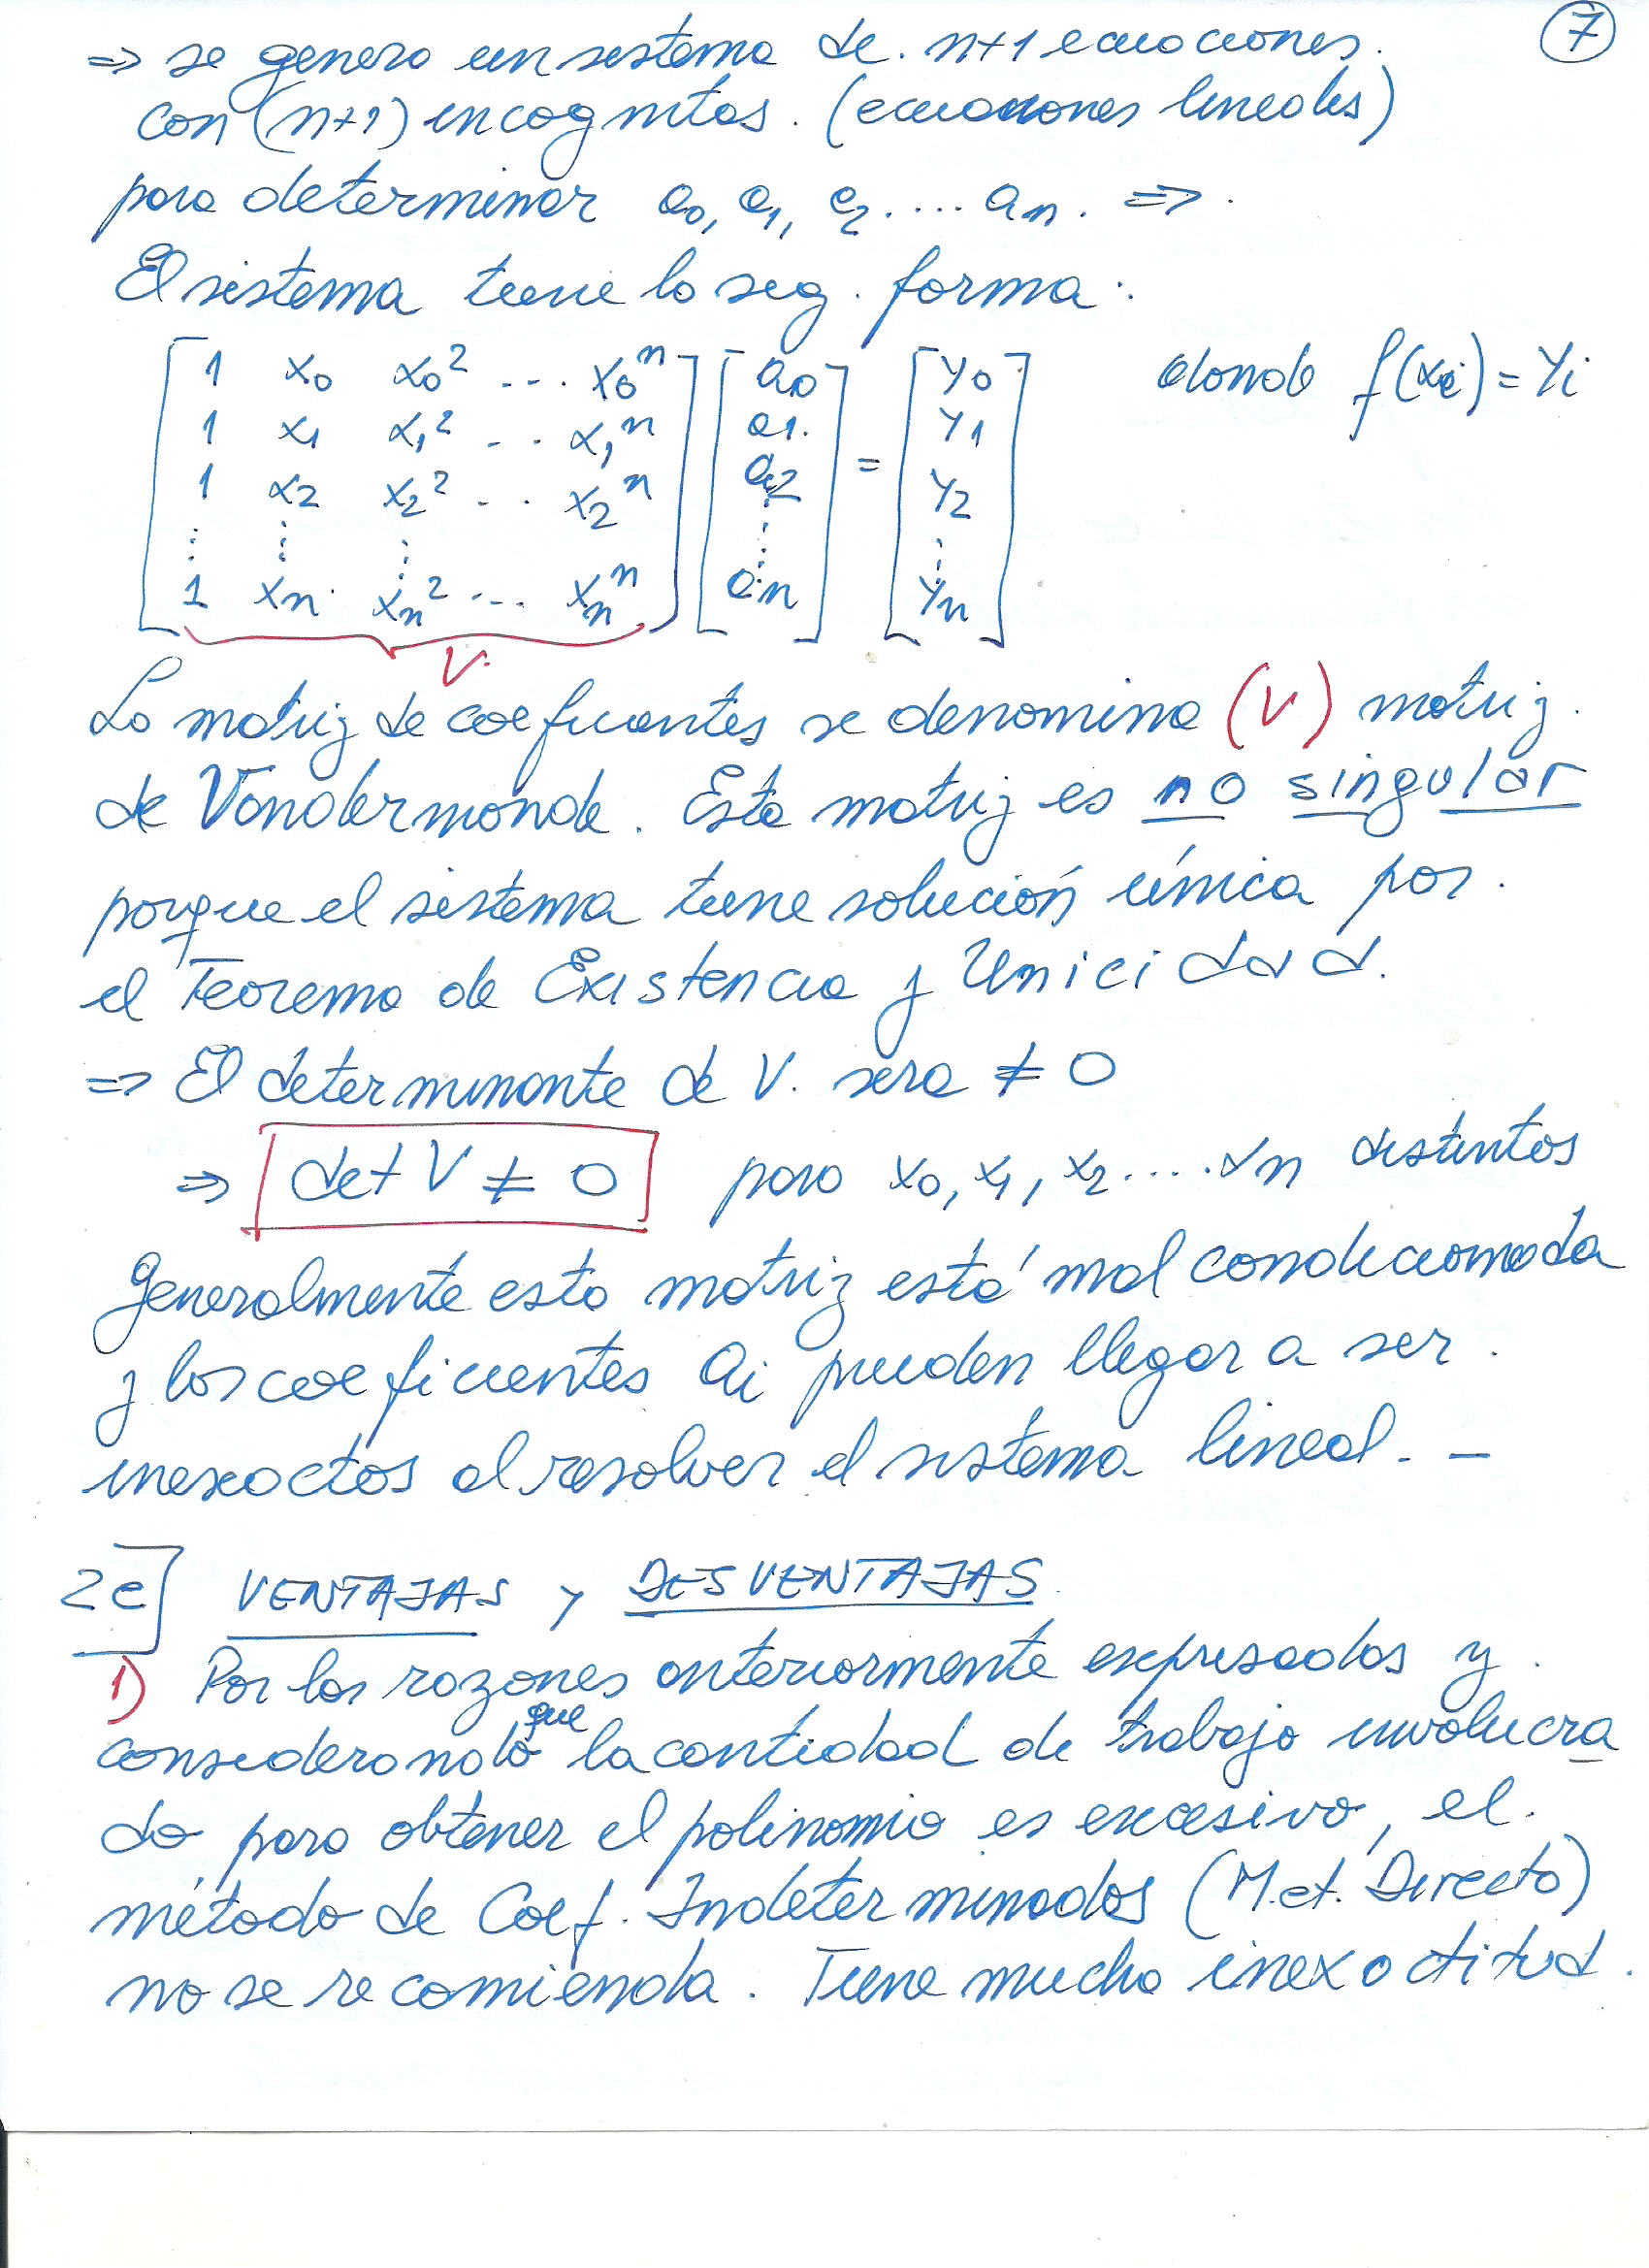 7
=> se genera un sistema de n+1 ecuaciones.
con (n+1) incognitas. (ecuaciones lineales)
para determinar a0, a1, a2.... an. =>.
El sistema tiene la sig. forma:
[1 x0 x0² ... x0ⁿ] [a0] = [y0] donde f(xi) = yi
[1 x1 x1² ... x1ⁿ] [a1.] [y1]
[1 x2 x2² ... x2ⁿ] [a2] [y2]
⋮ ⋮ ⋮ ⋮ ⋮
[1 xn xn² ... xnⁿ] [an] [yn]
V.
La matriz de coeficientes se denomina (V) matriz.
de Vandermonde. Esta matriz es no singular
porque el sistema tiene solución única por.
el Teorema de Existencia y Unicidad.
=> El determinante de V. sera ≠ 0
=> det V ≠ 0 para x0, x1, x2....xn distintos
Generalmente esta matriz está mal condicionada
y los coeficientes ai pueden llegar a ser.
inexactos al resolver el sistema lineal. -
2e] VENTAJAS y DESVENTAJAS
1) Por las razones anteriormente expresadas y.
considerando que la cantidad de trabajo involucra
do para obtener el polinomio es excesivo, el.
método de Coef. Indeterminados (Met. Directo)
no se recomienda. Tiene mucha inexactitud.